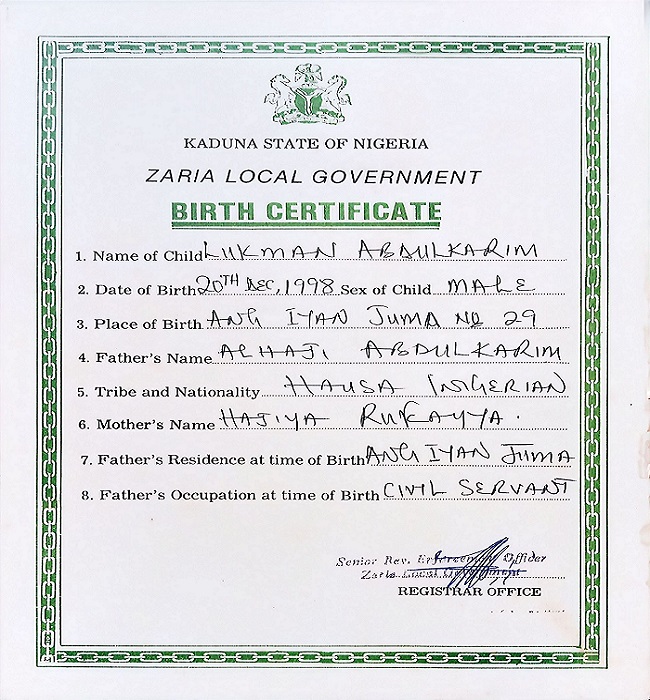 KADUNA STATE OF NIGERIA
ZARIA LOCAL GOVERNMENT
BIRTH CERTIFICATE
1. Name of Child LUKMAN ABDULKARIM
2. Date of Birth 20TH DEC, 1998 Sex of Child MALE
3. Place of Birth ANG IYAN JUMA NO 29
4. Father's Name ALHAJI ABDULKARIM
5. Tribe and Nationality HAUSA / NIGERIAN
6. Mother's Name HAJIYA RUKAYYA.
7. Father's Residence at time of Birth ANG IYAN JUMA
8. Father's Occupation at time of Birth CIVIL SERVANT
Senior Rev. Officer
Zaria Local Government
REGISTRAR OFFICE